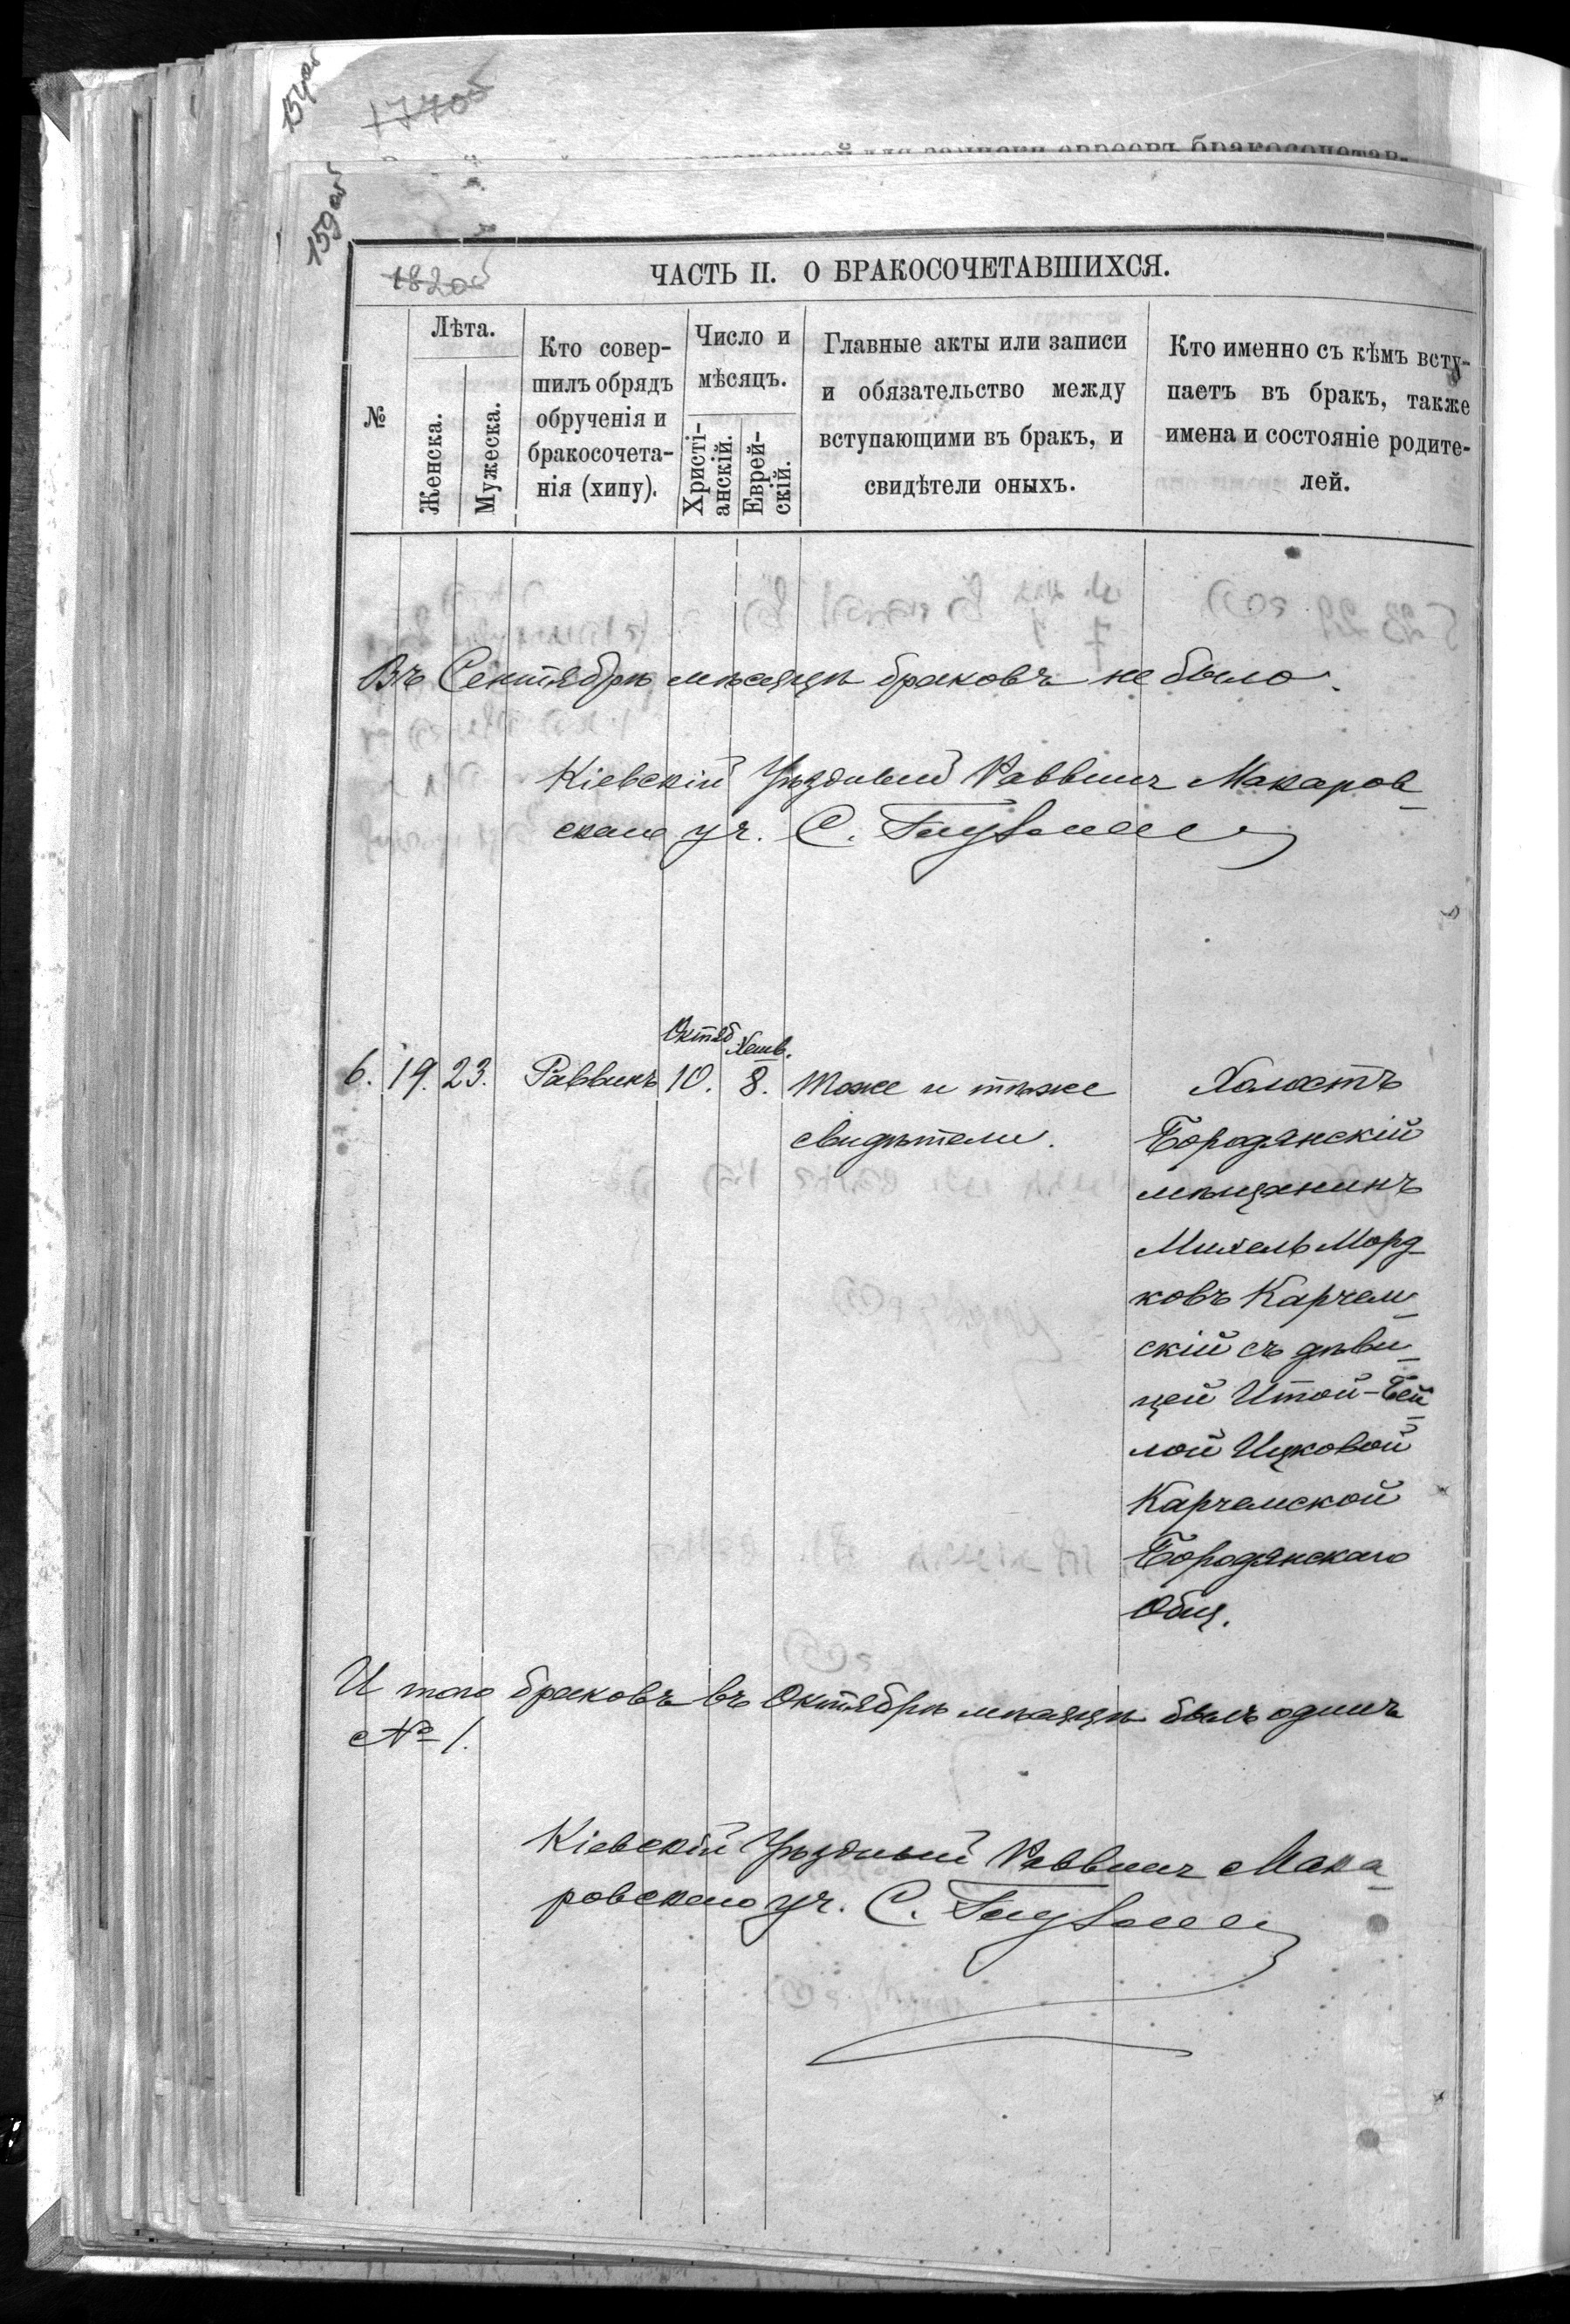 154об
177об
159об
182об
ЧАСТЬ II. О БРАКОСОЧЕТАВШИХСЯ.
№
Лѣта.
Женска.
Мужеска.
Кто совер-
шилъ обрядъ
обрученія и
бракосочета-
нія (хипу).
Число и
мѣсяцъ.
Христі-
анскій.
Еврей-
скій.
Главные акты или записи
и обязательство между
вступающими въ бракъ, и
свидѣтели оныхъ.
Кто именно съ кѣмъ всту-
паетъ въ бракъ, также
имена и состояніе родите-
лей.
Въ Сентябрѣ мѣсяцѣ браковъ не было.
Кіевскій Уѣздный Раввинъ Макаров-
скаго уч. С.
Октяб Хешв.
6. 19. 23. Раввинъ 10. 8. Тоже и тѣже Холостъ
свидѣтели. Бородянскій
мѣщанинъ
Михель Морд-
ковъ Карчем-
скій съ дѣви-
цей Итой-Бей-
лой Ицковой
Карчемской
Бородянскаго
Общ.
И того браковъ въ Октябрѣ мѣсяцѣ былъ одинъ
№ 1.
Кіевскій Уѣздный Раввинъ Мака-
ровскаго уч. С.